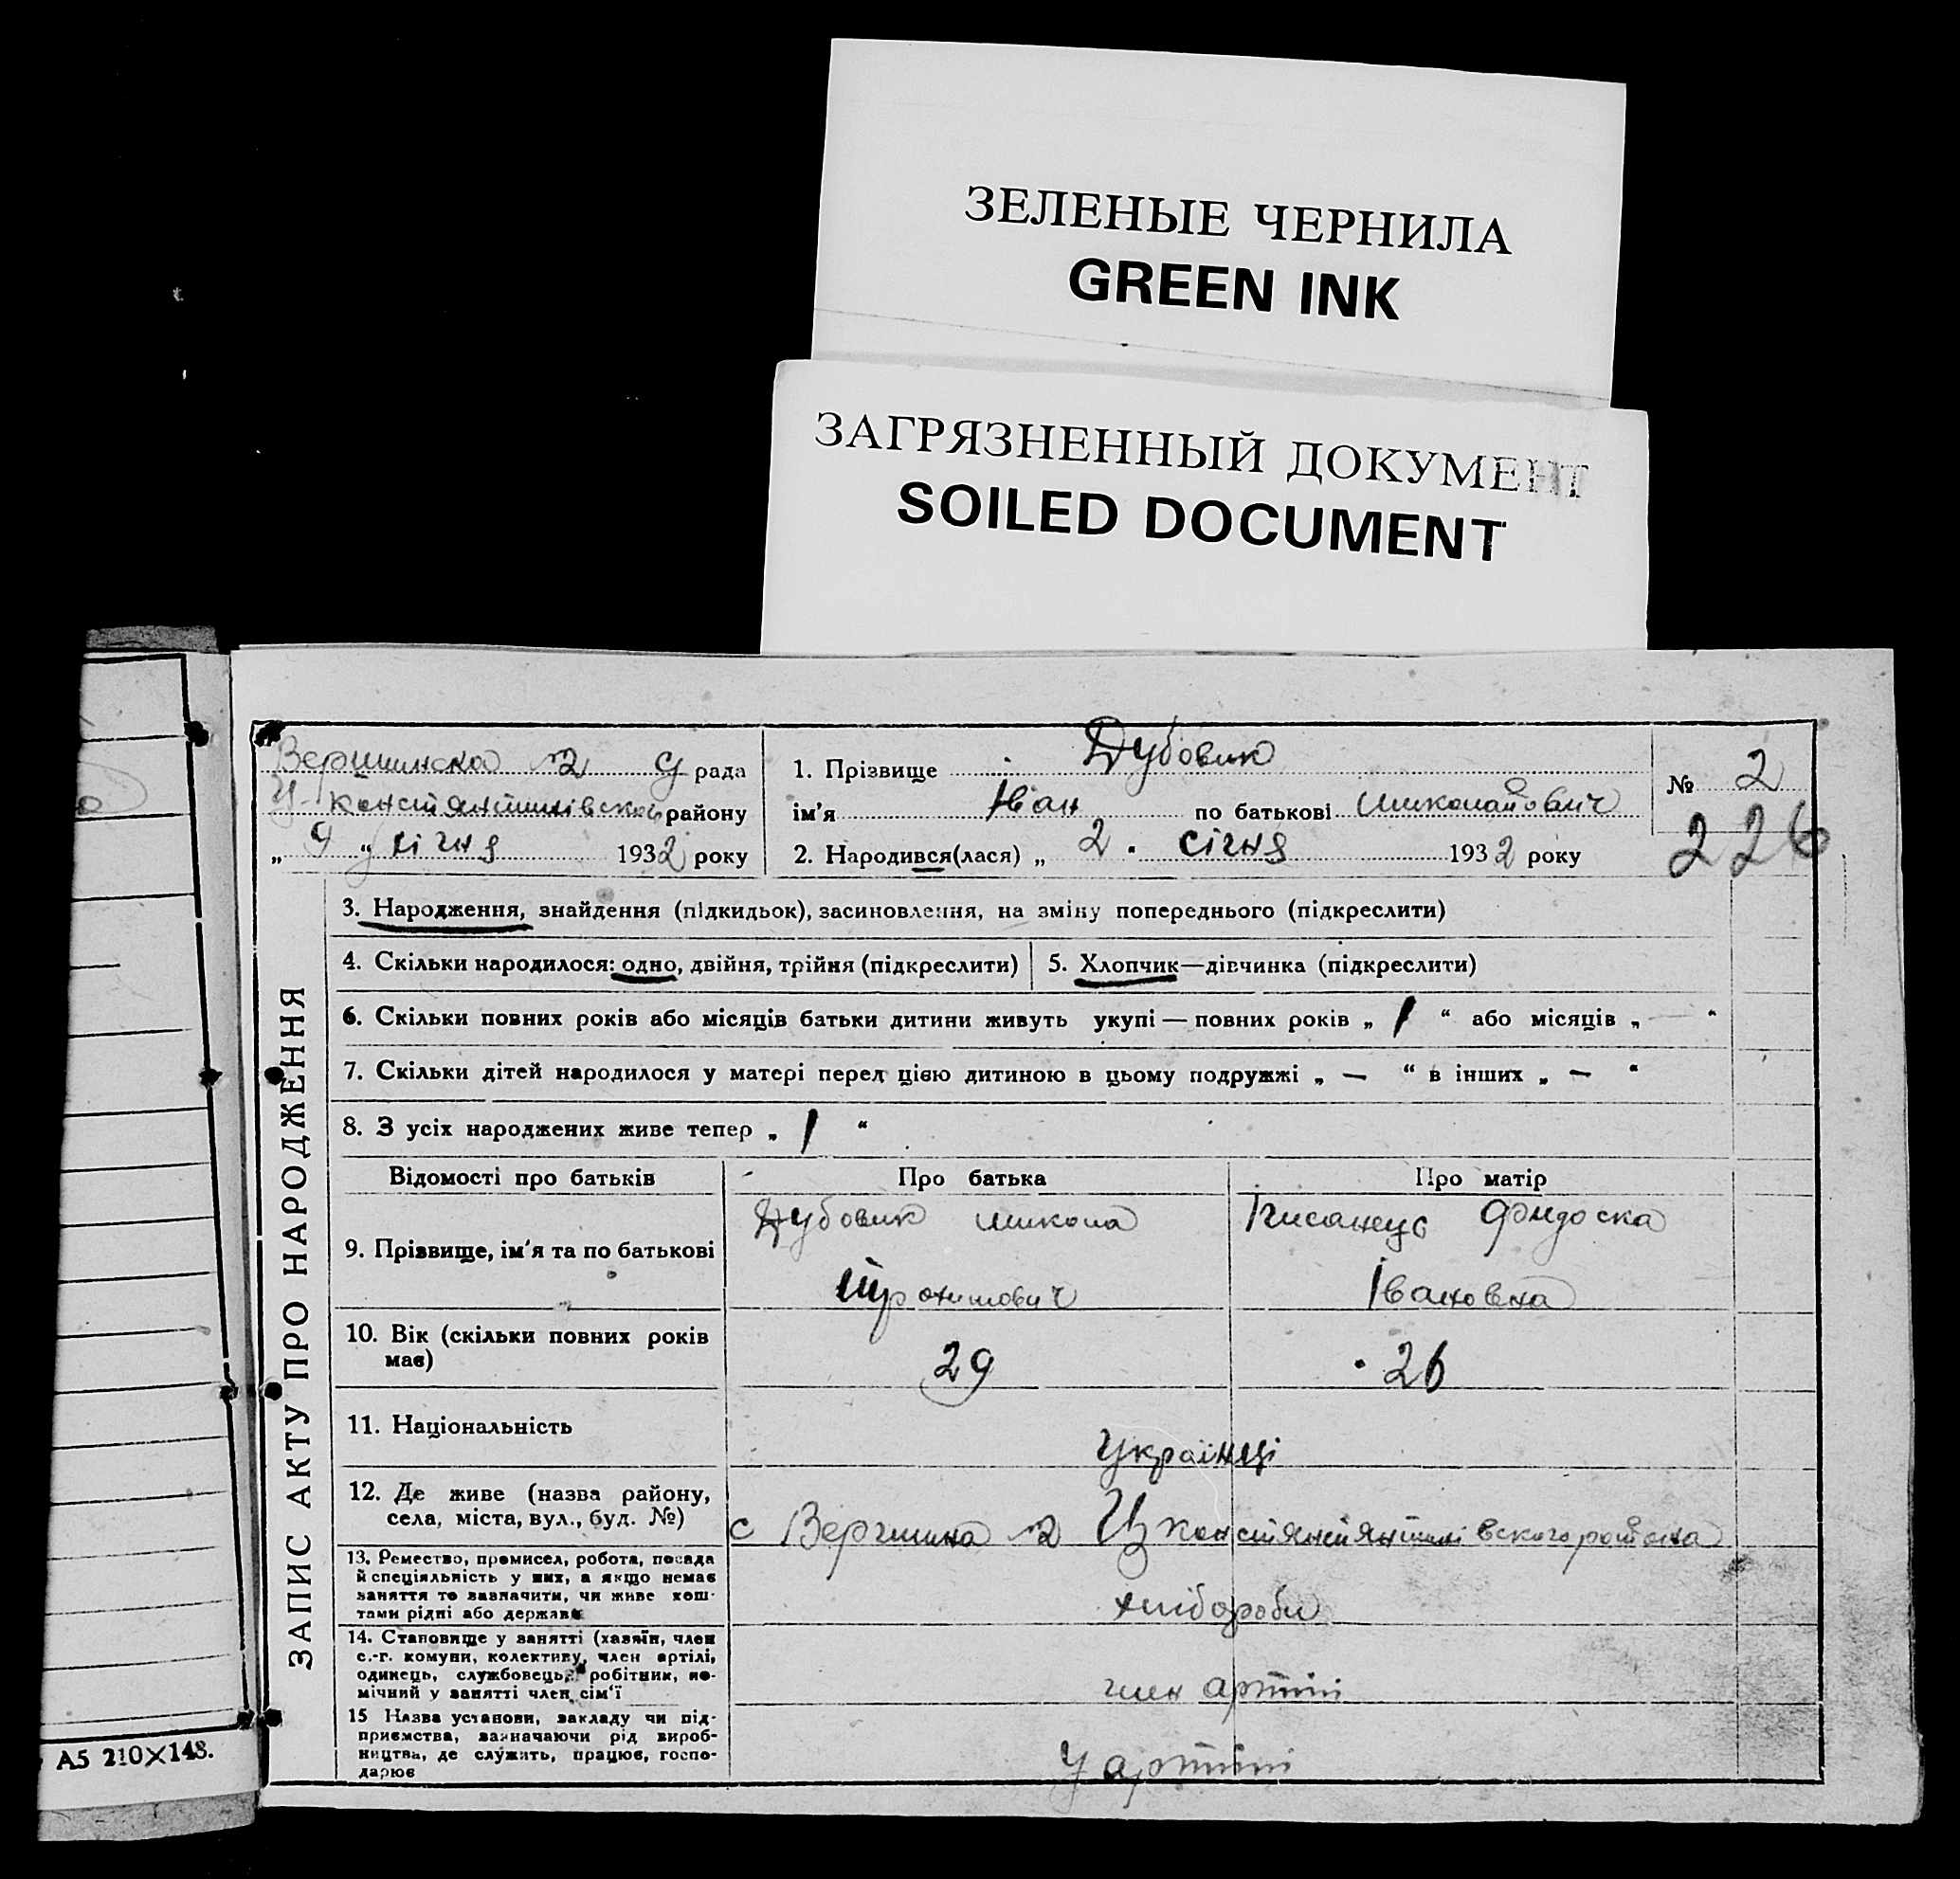 ЗЕЛЕНЫЕ ЧЕРНИЛА
GREEN INK
ЗАГРЯЗНЕННЫЙ ДОКУМЕНТ
SOILED DOCUMENT
Вершинска №2 С рада
Ц-Констянтинівской району
„ 9 “ січня 1932 року
1. Прізвище Дубовик
ім'я Іван по батькові Миколайович
2. Народився(лася) „ 2. січня 1932 року
№ 2
226
ЗАПИС АКТУ ПРО НАРОДЖЕННЯ
3. Народження, знайдення (підкидьок), засиновлення, на зміну попереднього (підкреслити)
4. Скільки народилося: одно, двійня, трійня (підкреслити)
5. Хлопчик—дівчинка (підкреслити)
6. Скільки повних років або місяців батьки дитини живуть укупі — повних років „ 1 “ або місяців „ — “
7. Скільки дітей народилося у матері перед цією дитиною в цьому подружжі „ — “ в інших „ — “
8. З усіх народжених живе тепер „ 1 “
Відомості про батьків Про батька Про матір
9. Прізвище, ім'я та по батькові
Дубовик Микола
Трохимович
Фидоска
Івановна
10. Вік (скільки повних років
має)
29 26
11. Національність
Українці
12. Де живе (назва району,
села, міста, вул., буд. №)
с Вершина №2 Ц Констянтянтинівского района
13. Ремество, промисел, робота, посада
й спеціяльність у них, а якщо немає
заняття то зазначити, чи живе кош-
тами рідні або держави
хлібороби
14. Становище у занятті (хазяїн, член
с.-г. комуни, колективу, член артілі,
одинець, службовець, робітник, по-
мічний у занятті член сім'ї
член артілі
15 Назва установи, закладу чи під-
приємства, зазначаючи рід вироб-
ництва, де служить, працює, госпо-
дарює
У артілі
А5 210×148.